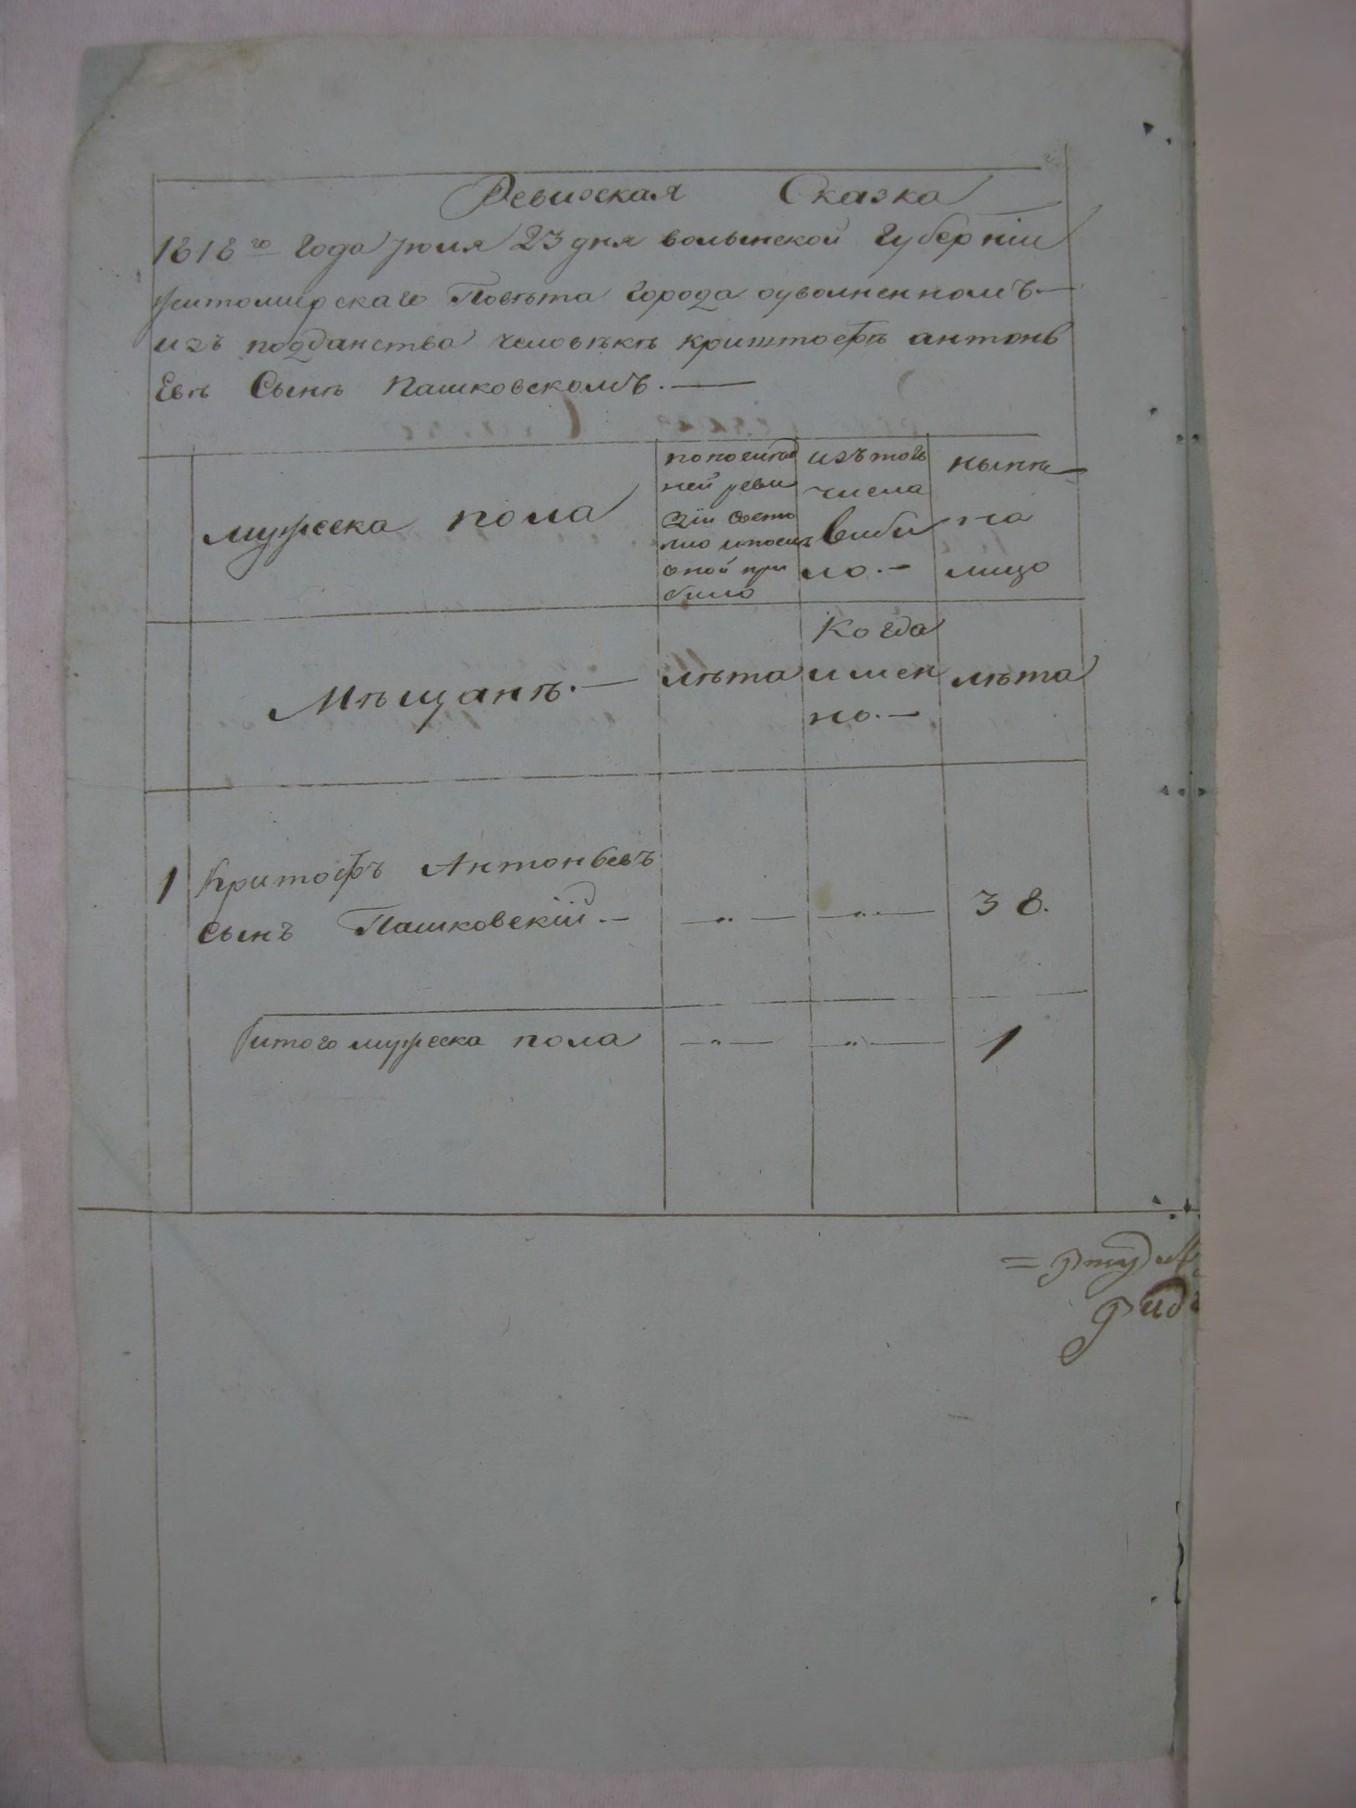 Ревиская Сказка
1818го Года июля 23 дня волынской Губерніи
житомирскаго Повѣта Города о уволненномъ
изъ подданства человѣкѣ криштофѣ антонь
Евѣ Сынѣ Пашковскомъ.
мужеска пола
попослѣд
ней реви
зіи состо
яло ипосля
оной при
было
изътого
числа
выбы
ло.
нынѣ
на
лицо
Мѣщанѣ.
лѣта
Когда
имен
но.
лѣта
1 Критофъ Антоньевъ
сынъ Пашковскій. — „ — — „ — 38.
итого мужеска пола — „ — — „ — 1